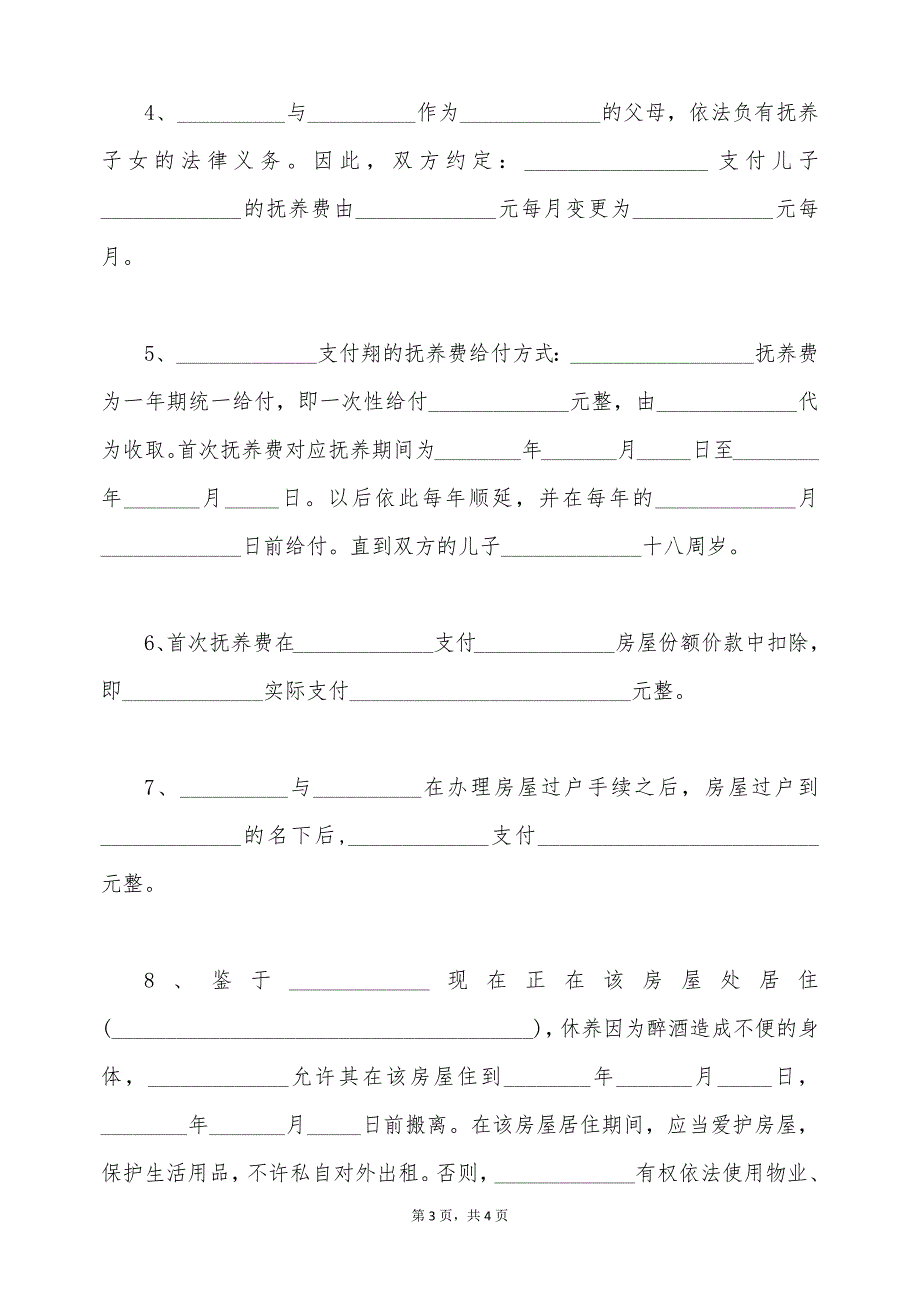 4、__________与__________作为_____________的父母，依法负有抚养
子女的法律义务。因此，双方约定：_________________ 支付儿子
_____________的抚养费由_____________元每月变更为_____________元每
月。
5、_____________支付翔的抚养费给付方式：_________________抚养费
为一年期统一给付，即一次性给付_____________元整，由_____________代
为收取。首次抚养费对应抚养期间为________年_______月_____日至________
年_______月_____日。以后依此每年顺延，并在每年的_____________月
_____________日前给付。直到双方的儿子_____________十八周岁。
6、首次抚养费在_____________支付_____________房屋份额价款中扣除，
即_____________实际支付__________________________元整。
7、__________与__________在办理房屋过户手续之后，房屋过户到
_____________的名下后,_____________支付__________________________
元整。
8、鉴于_____________现在正在该房屋处居住
(_______________________________________)，休养因为醉酒造成不便的身
体，_____________允许其在该房屋住到________年_______月_____日，
________年_______月_____日前搬离。在该房屋居住期间，应当爱护房屋，
保护生活用品，不许私自对外出租。否则，_____________有权依法使用物业、
第 3 页，共 4 页